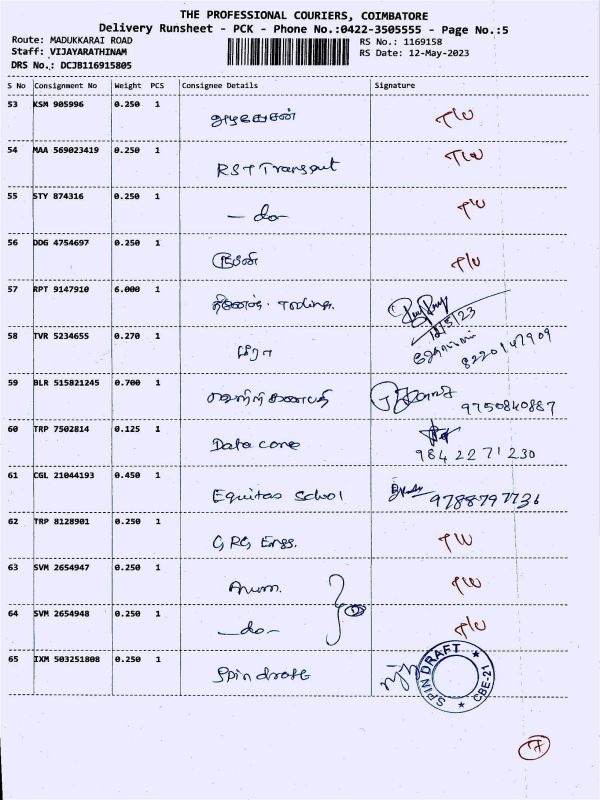 THE PROFESSIONAL COURIERS, COIMBATORE
Delivery Runsheet - PCK - Phone No.:0422-3505555 - Page No.:5
Route: MADUKKARAI ROAD
Staff: VIJAYARATHINAM
DRS No.: DCJB116915805
RS No.: 1169158
RS Date: 12-May-2023
S No Consignment No Weight PCS Consignee Details Signature
53 KSM 905996 0.250 1
54 MAA 569023419 0.250 1 RST Transport
55 STY 874316 0.250 1 - do -
56 DDG 4754697 0.250 1
57 RPT 9147910 6.000 1 12/5/23
58 TVR 5234655 0.270 1 8220147909
59 BLR 515821245 0.700 1 9750840887
60 TRP 7502814 0.125 1 Data core 984 2271230
61 CGL 21044193 0.450 1 Equitas School 9788797736
62 TRP 8128901 0.250 1 GRG Engg.
63 SVM 2654947 0.250 1
64 SVM 2654948 0.250 1 - do -
65 IXM 503251808 0.250 1 Spin draft SPIN DRAFT CBE-21